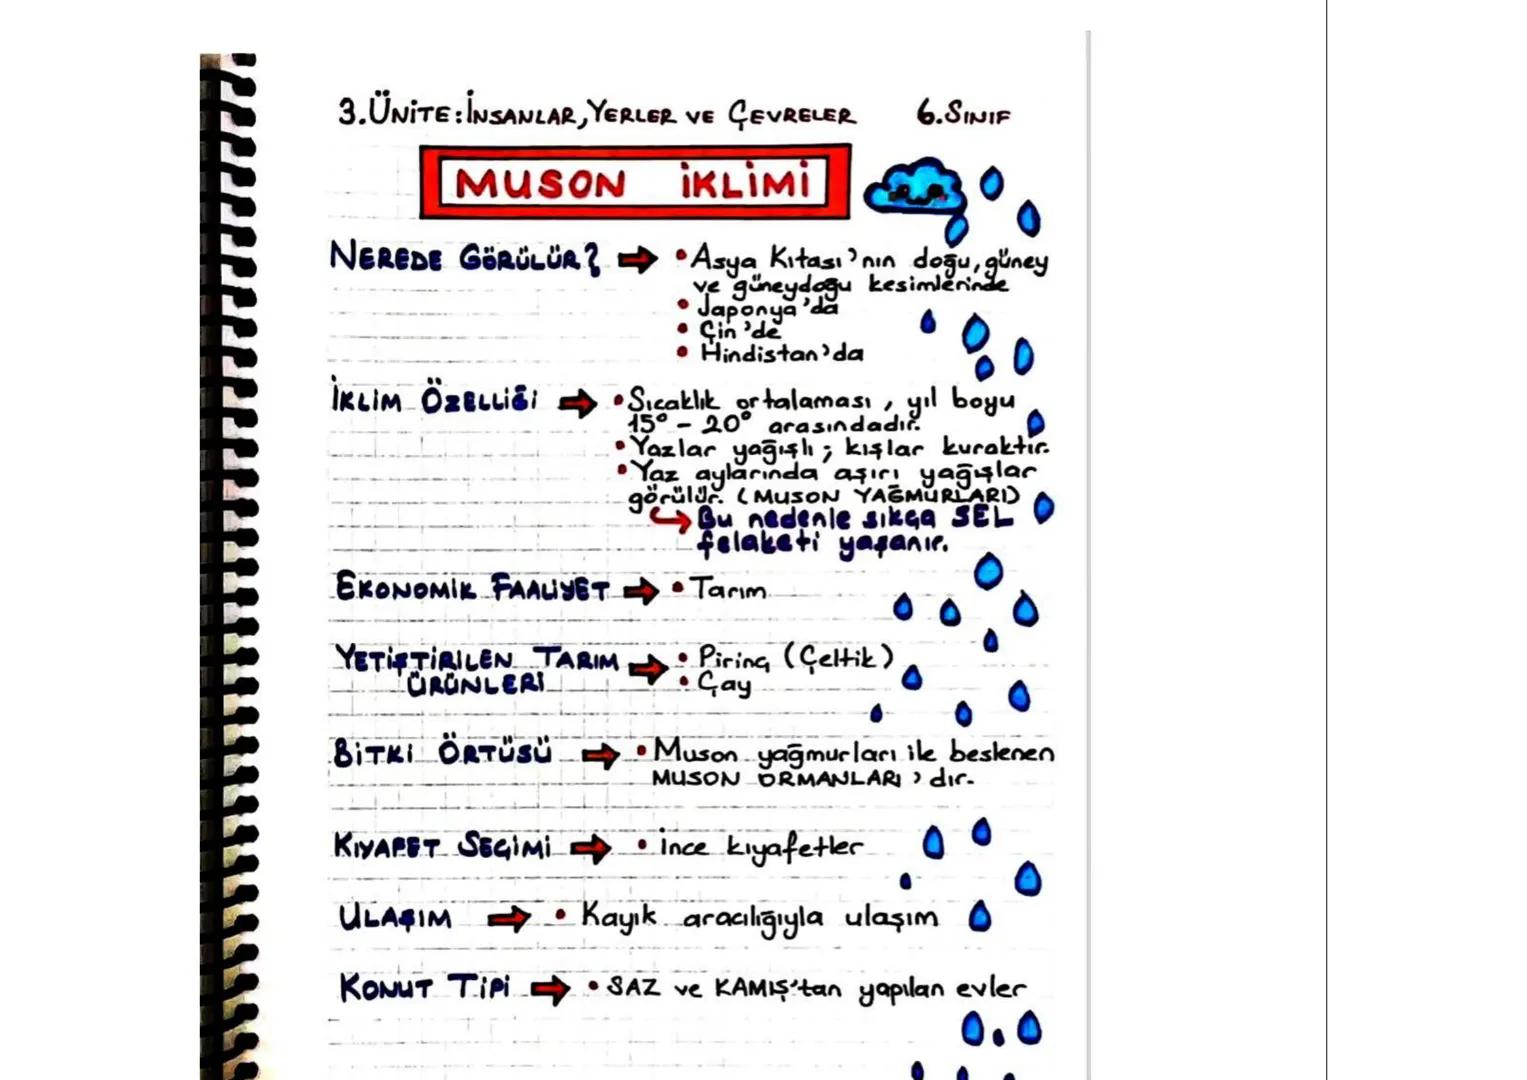 3.ÜNİTE: İNSANLAR, YERLER VE ÇEVRELER 6.SINIF
MUSON İKLİMİ
NEREDE GÖRÜLÜR? → • Asya Kıtası'nın doğu, güney
ve güneydoğu kesimlerinde
• Japonya'da
• Çin'de
• Hindistan'da
İKLİM ÖZELLİĞİ → • Sıcaklık ortalaması, yıl boyu
15° - 20° arasındadır.
• Yazlar yağışlı; kışlar kuraktır.
• Yaz aylarında aşırı yağışlar
görülür. (MUSON YAĞMURLARI)
↪ Bu nedenle sıkça SEL
felaketi yaşanır.
EKONOMİK FAALİYET → • Tarım
YETİŞTİRİLEN TARIM → • Pirinç (Çeltik)
ÜRÜNLERİ • Çay
BİTKİ ÖRTÜSÜ → • Muson yağmurları ile beslenen
MUSON ORMANLARI'dır.
KIYAFET SEÇİMİ → • İnce kıyafetler
ULAŞIM → • Kayık aracılığıyla ulaşım
KONUT TİPİ → • SAZ ve KAMIŞ'tan yapılan evler